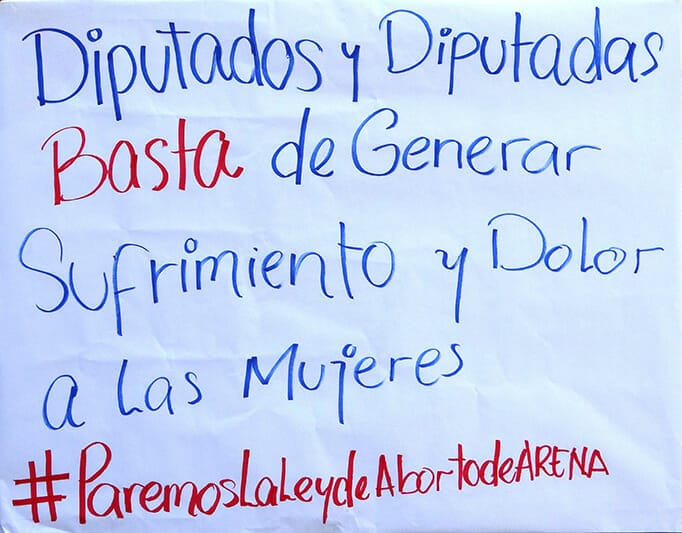 Diputados y Diputadas
Basta de Generar
Sufrimiento y Dolor
a Las Mujeres
#ParemosLaLeydeAbortodeARENA